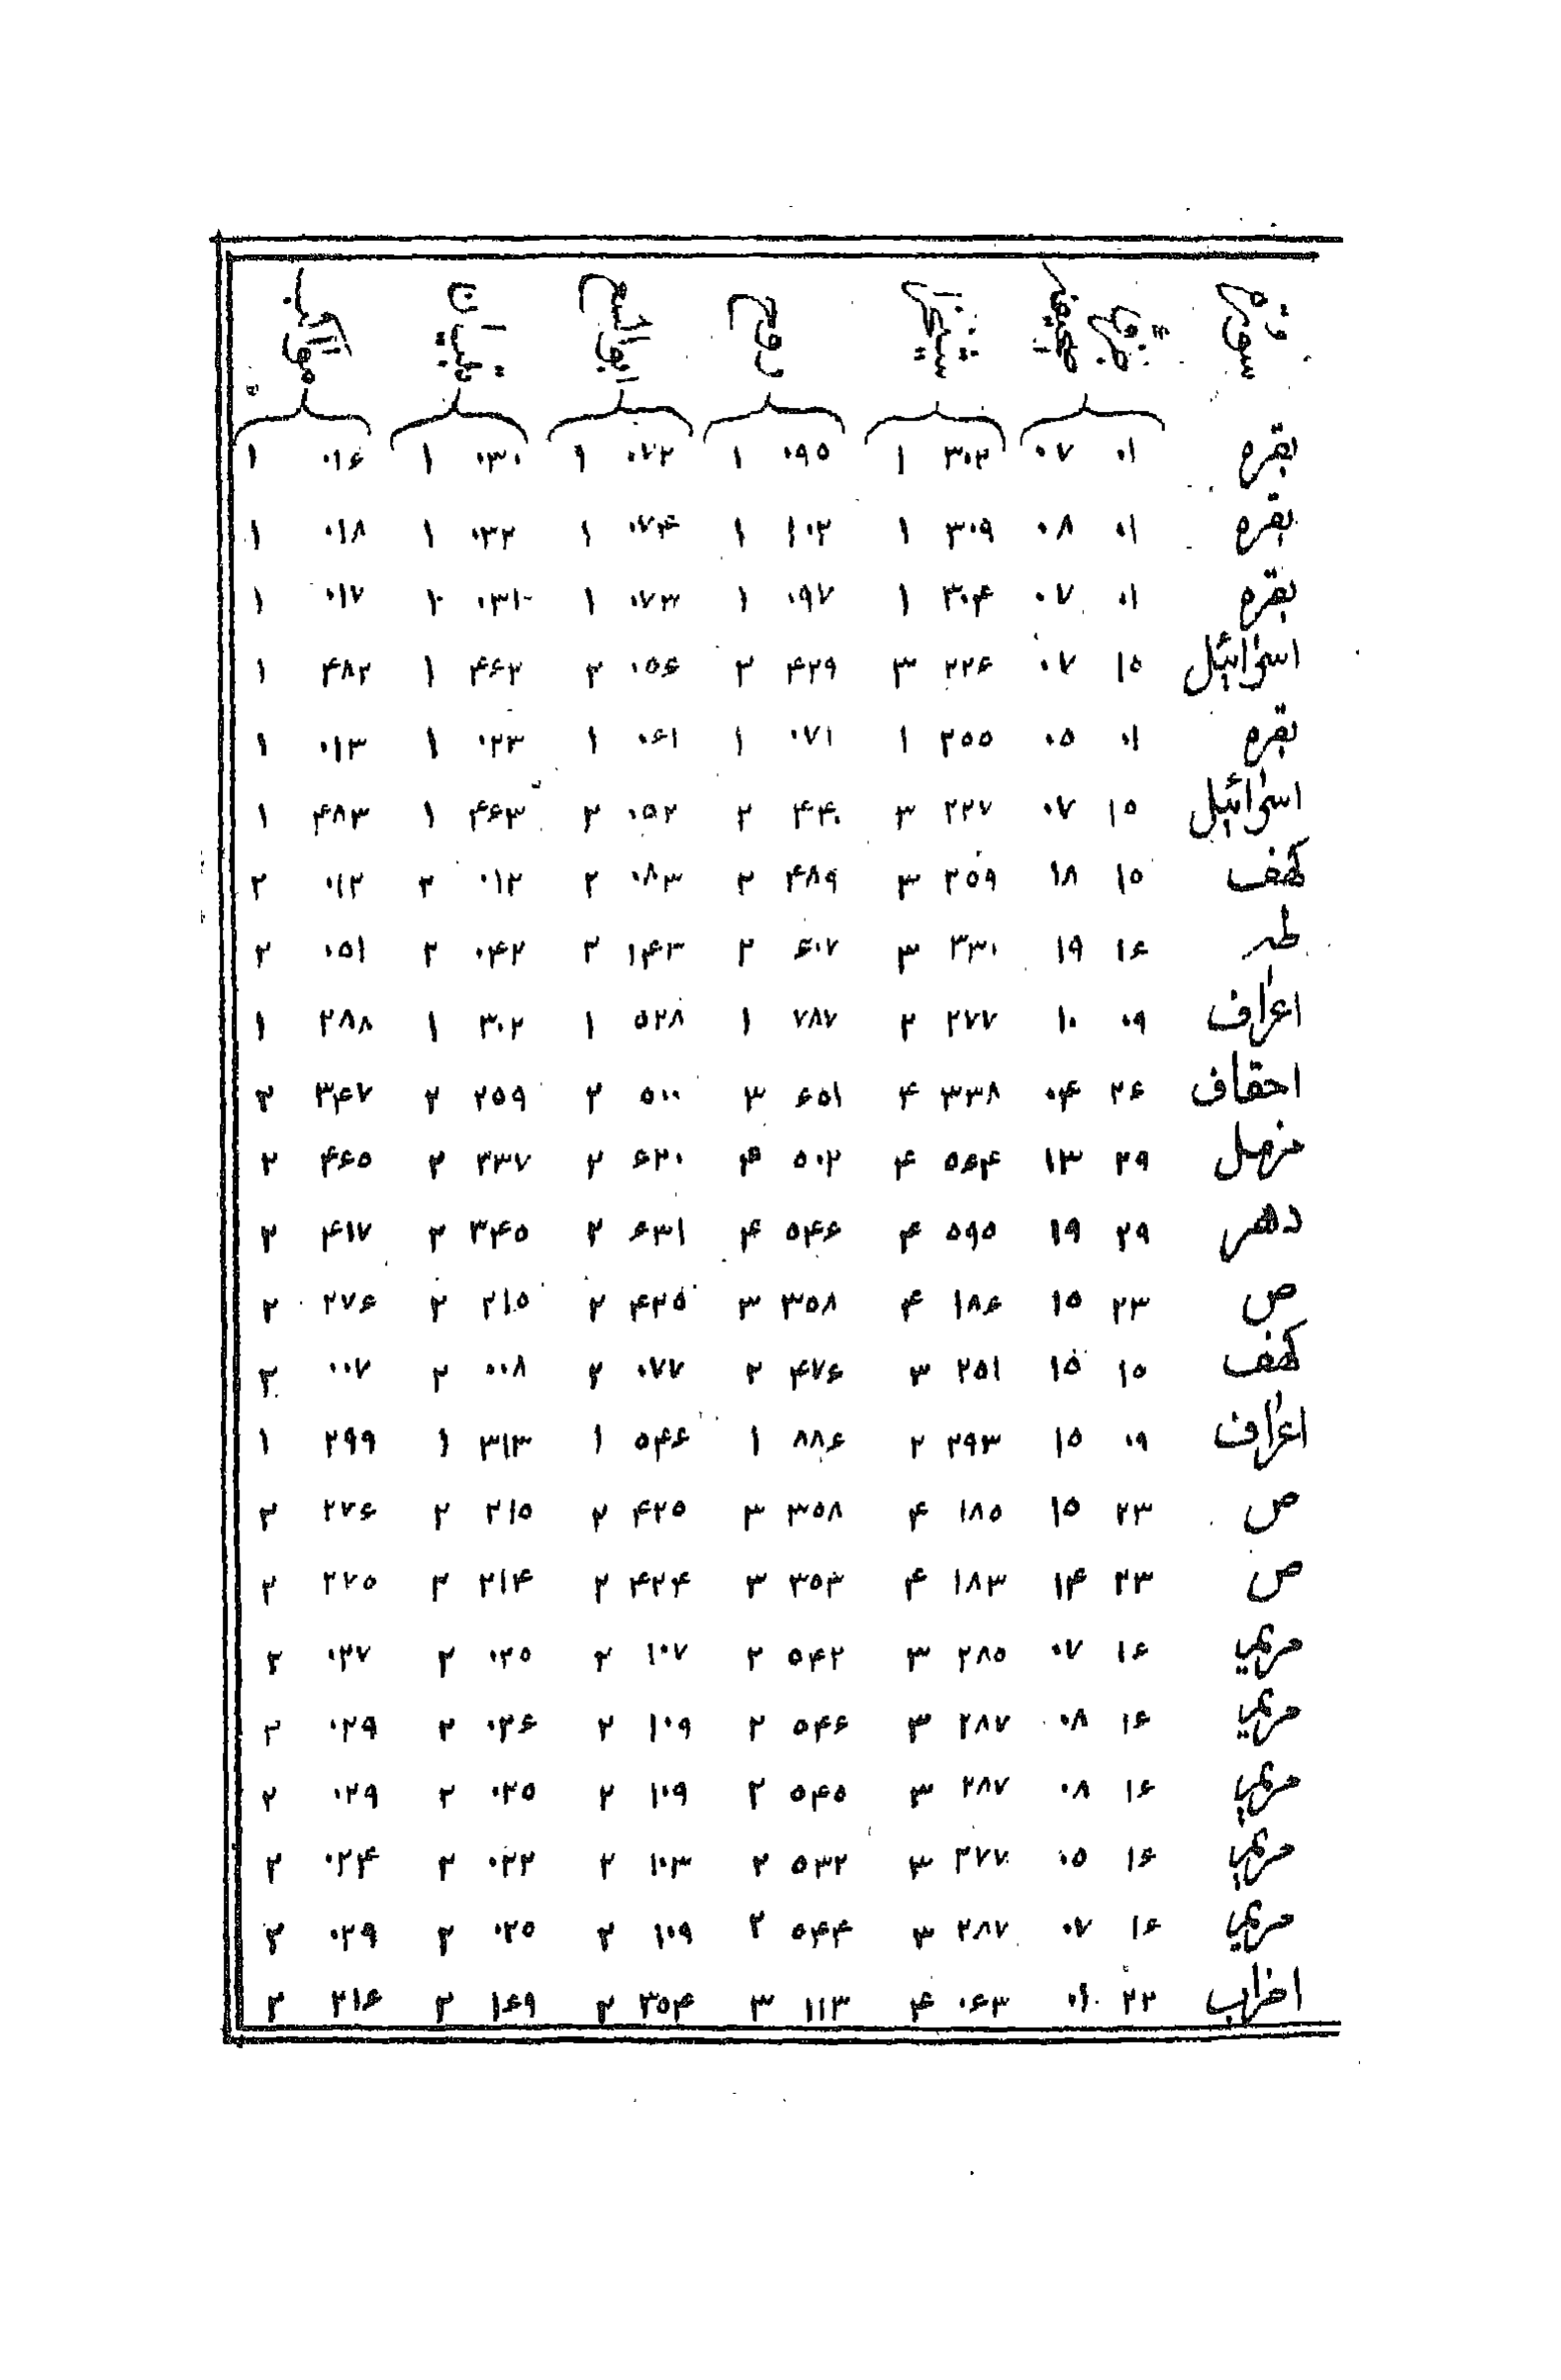 بقره ۰۱ ۰۷ ۳۰۲ ۱ ۰۹۵ ۱ ۰۷۲ ۱ ۰۳۰ ۱ ۰۱۶ ۱
بقره ۰۱ ۰۸ ۳۰۹ ۱ ۱۰۲ ۱ ۰۷۴ ۱ ۰۳۲ ۱ ۰۱۸ ۱
بقره ۰۱ ۰۷ ۳۰۴ ۱ ۰۹۷ ۱ ۰۷۳ ۱ ۰۳۱ ۱ ۰۱۷ ۱
اسرائیل ۱۵ ۰۷ ۲۲۶ ۳ ۴۲۹ ۲ ۰۵۶ ۲ ۴۶۲ ۱ ۴۸۲ ۱
بقره ۰۱ ۰۵ ۲۵۵ ۱ ۰۷۱ ۱ ۰۶۱ ۱ ۰۲۳ ۱ ۰۱۳ ۱
اسرائیل ۱۵ ۰۷ ۲۲۷ ۳ ۴۴۰ ۲ ۰۵۲ ۲ ۴۶۳ ۱ ۴۸۳ ۱
کهف ۱۵ ۱۸ ۲۵۹ ۳ ۴۸۹ ۲ ۰۸۳ ۲ ۰۱۲ ۲ ۰۱۲ ۲
طه ۱۶ ۱۹ ۳۳۰ ۳ ۶۰۷ ۲ ۱۴۳ ۲ ۰۴۲ ۲ ۰۵۱ ۲
اعراف ۰۹ ۱۰ ۲۷۷ ۲ ۷۸۷ ۱ ۵۲۸ ۱ ۳۰۲ ۱ ۲۸۸ ۱
احقاف ۲۶ ۰۴ ۳۳۸ ۴ ۶۵۱ ۳ ۵۰۰ ۲ ۲۵۹ ۲ ۳۴۷ ۲
مزمل ۲۹ ۱۳ ۵۶۴ ۴ ۵۰۲ ۴ ۶۲۰ ۲ ۳۳۷ ۲ ۴۶۵ ۲
دهر ۲۹ ۱۹ ۵۹۵ ۴ ۵۴۶ ۴ ۶۳۱ ۲ ۳۴۵ ۲ ۴۱۷ ۲
ص ۲۳ ۱۵ ۱۸۶ ۴ ۳۵۸ ۳ ۴۲۵ ۲ ۲۱۵ ۲ ۲۷۶ ۲
کهف ۱۵ ۱۵ ۲۵۱ ۳ ۴۷۶ ۲ ۰۷۷ ۲ ۰۰۸ ۲ ۰۰۷ ۲
اعراف ۰۹ ۱۵ ۲۹۳ ۲ ۸۸۶ ۱ ۵۴۶ ۱ ۳۱۳ ۱ ۲۹۹ ۱
ص ۲۳ ۱۵ ۱۸۵ ۴ ۳۵۸ ۳ ۴۲۵ ۲ ۲۱۵ ۲ ۲۷۶ ۲
ص ۲۳ ۱۴ ۱۸۳ ۴ ۳۵۳ ۳ ۴۲۴ ۲ ۲۱۴ ۲ ۲۷۵ ۲
مریم ۱۶ ۰۷ ۲۸۵ ۳ ۵۴۲ ۲ ۱۰۷ ۲ ۰۲۵ ۲ ۰۲۷ ۲
مریم ۱۶ ۰۸ ۲۸۷ ۳ ۵۴۶ ۲ ۱۰۹ ۲ ۰۲۶ ۲ ۰۲۹ ۲
مریم ۱۶ ۰۸ ۲۸۷ ۳ ۵۴۵ ۲ ۱۰۹ ۲ ۰۲۵ ۲ ۰۲۹ ۲
مریم ۱۶ ۰۵ ۲۷۷ ۳ ۵۳۲ ۲ ۱۰۳ ۲ ۰۲۲ ۲ ۰۲۴ ۲
مریم ۱۶ ۰۷ ۲۸۷ ۳ ۵۴۴ ۲ ۱۰۹ ۲ ۰۲۵ ۲ ۰۲۹ ۲
احزاب ۲۲ ۰۱ ۰۶۳ ۴ ۱۱۳ ۳ ۳۵۴ ۲ ۱۶۹ ۲ ۲۱۶ ۲